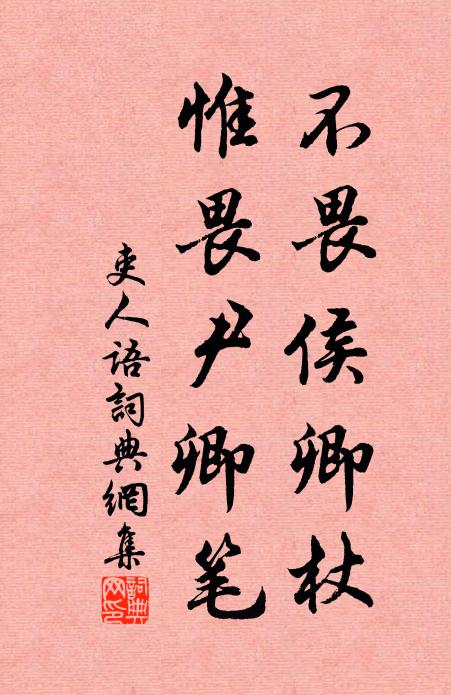 不畏侯卿杖
惟畏尹卿笔
吏人语詞典網集
詞典
网名